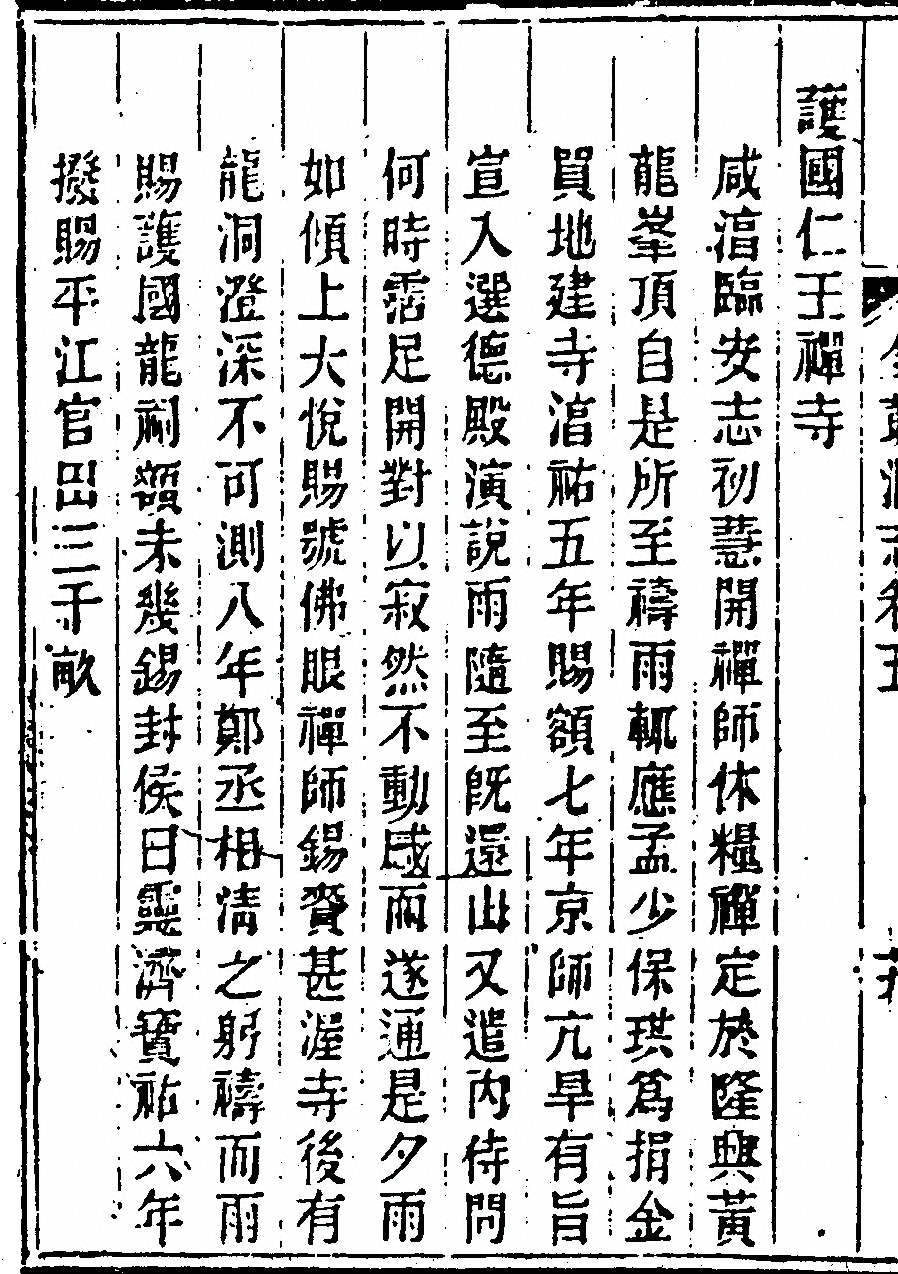 護國仁王禪寺
咸湻臨安志初慧開禪師休糧禪定於隆興黃
龍峯頂自是所至禱雨輒應孟少保珙爲捐金
買地建寺湻祐五年賜額七年京師亢旱有旨
宣入選德殿演說雨隨至旣還山又遣內侍問
何時霑足開對以寂然不動感而遂通是夕雨
如傾上大悅賜號佛眼禪師錫賚甚渥寺後有
龍洞澄深不可測八年鄭丞相清之躬禱而雨
賜護國龍祠額未幾錫封侯曰靈濟寶祐六年
撥賜平江官田三千畝